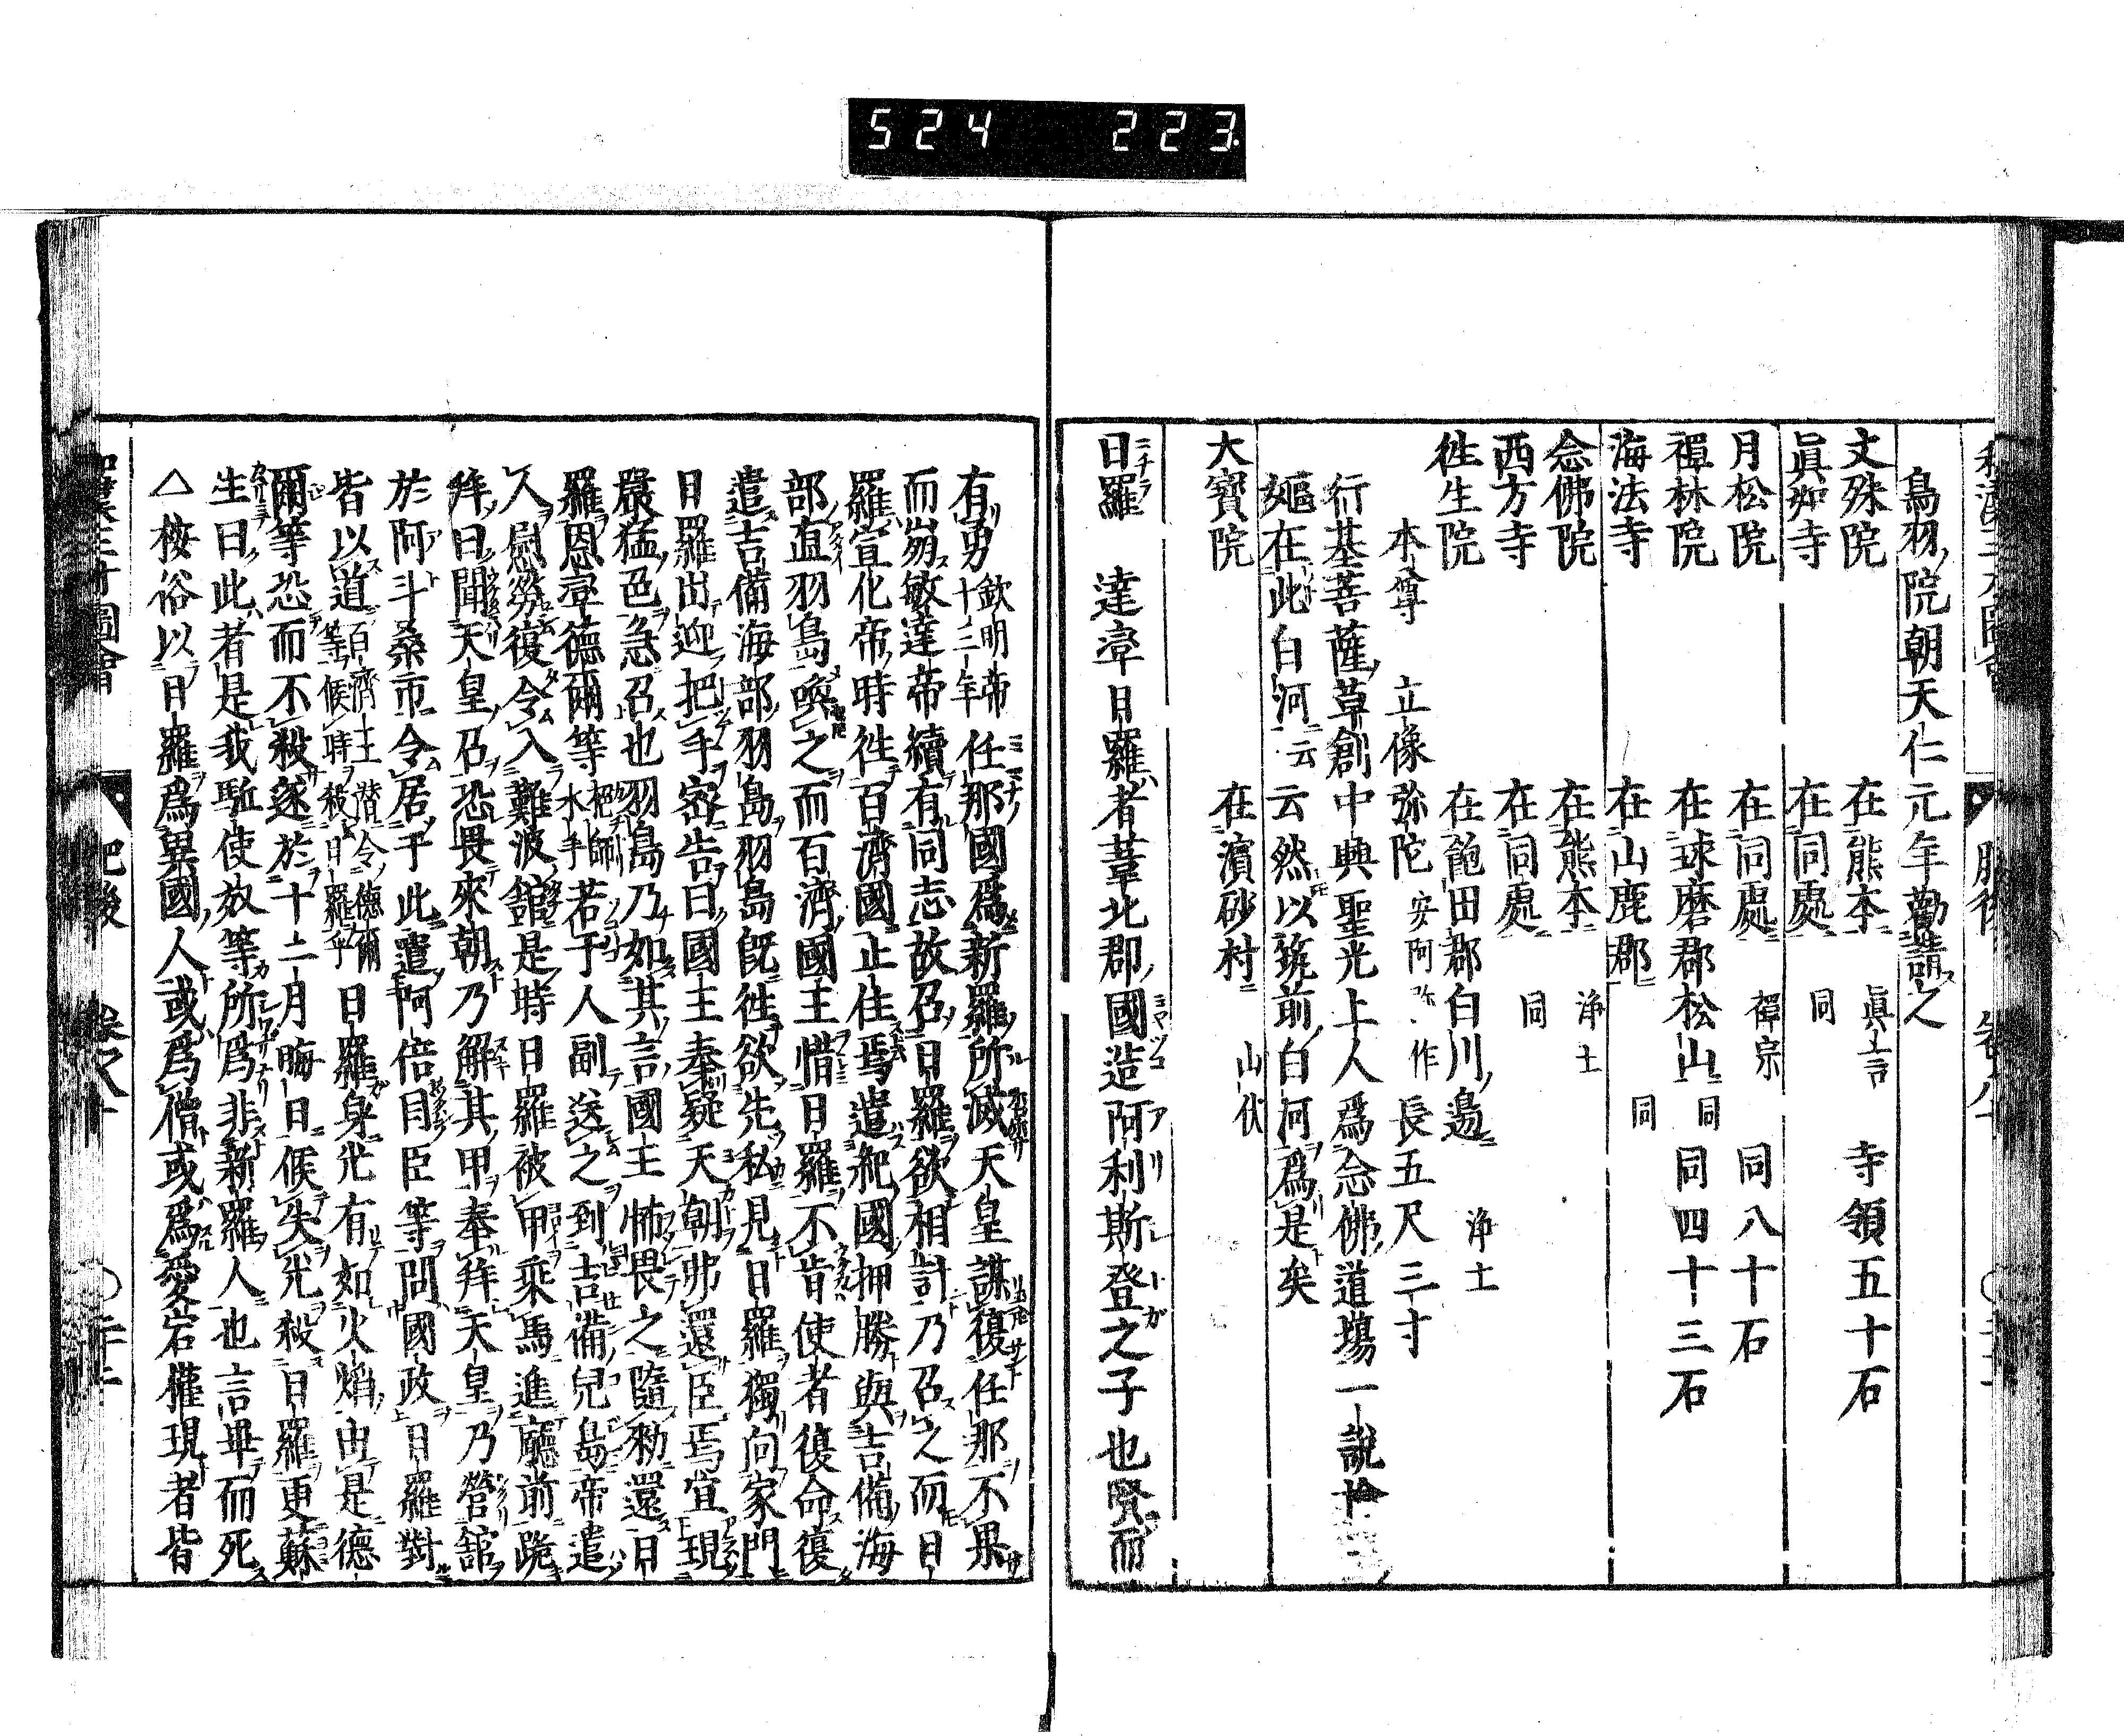 524 223
鳥羽院朝天仁元年勸請之
文殊院 在熊本 眞言 寺領五十石
眞如寺 在同處 同
月松院 在同處 禪宗 同八十石
禪林院 在球磨郡松山 同 同四十三石
海法寺 在山鹿郡 同
念佛院 在熊本 淨土
西方寺 在同處 同
徃生院 在飽田郡白川邊 淨土
本尊 立像 弥陀 安阿弥作 長五尺三寸
行基菩薩草創中興聖光上人爲念佛道塲一說檜
嫗在此白河云云然以筑前白河爲是矣
大寶院 在濵砂村 山伏
日羅 達率日羅者葦北郡國造阿利斯登之子也賢而
有勇 欽明帝十三年 任那國爲新羅所滅天皇謀復任那不果
而崩敏達帝續有同志故召日羅欲相計乃召之而日
羅宣化帝時徃百濟國止住焉遣紀國押勝與吉備海
部直羽島喚之而百濟國主惜日羅不肯使者復命復
遣吉備海部羽島羽島旣徃欲先私見日羅獨向家門
日羅出迎把手密告曰國主奉疑天朝弗還臣焉宜現
嚴猛色急召也羽島乃如其言國主怖畏之隨勑還日
羅恩率德爾等 柁師水手 若于人副送之到吉備兒島帝遣
人慰勞復令入難波舘是時日羅被甲乘馬進廳前跪
拜曰聞天皇召恐畏來朝乃解其甲奉拜天皇乃營舘
於阿斗桑市令居于此遣阿倍目臣等問國政日羅對
皆以道 百濟王潜令德爾等候時殺日羅乎 日羅身光有如火焰由是德
爾等恐而不殺遂於十二月晦日候失光殺日羅更蘇
生曰此者是我駈使奴等所爲非新羅人也言畢而死
△按俗以日羅爲異國人或爲僧或爲愛宕權現者皆
肥後 卷之八十